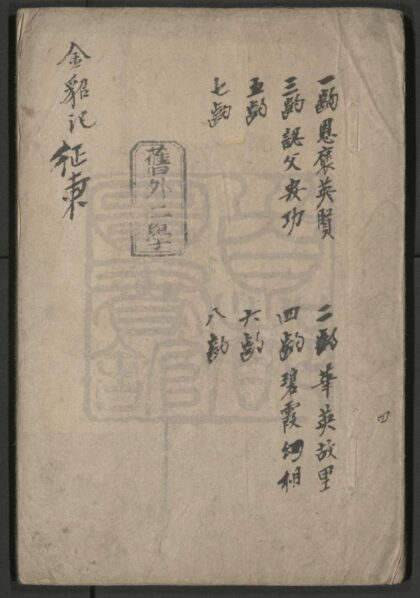 一齣恩褒英賢
二齣華英故里
三齣認父功
四齣碧霞相
五齣
六齣
七齣
八齣
舊外二學
金貂記征東
四